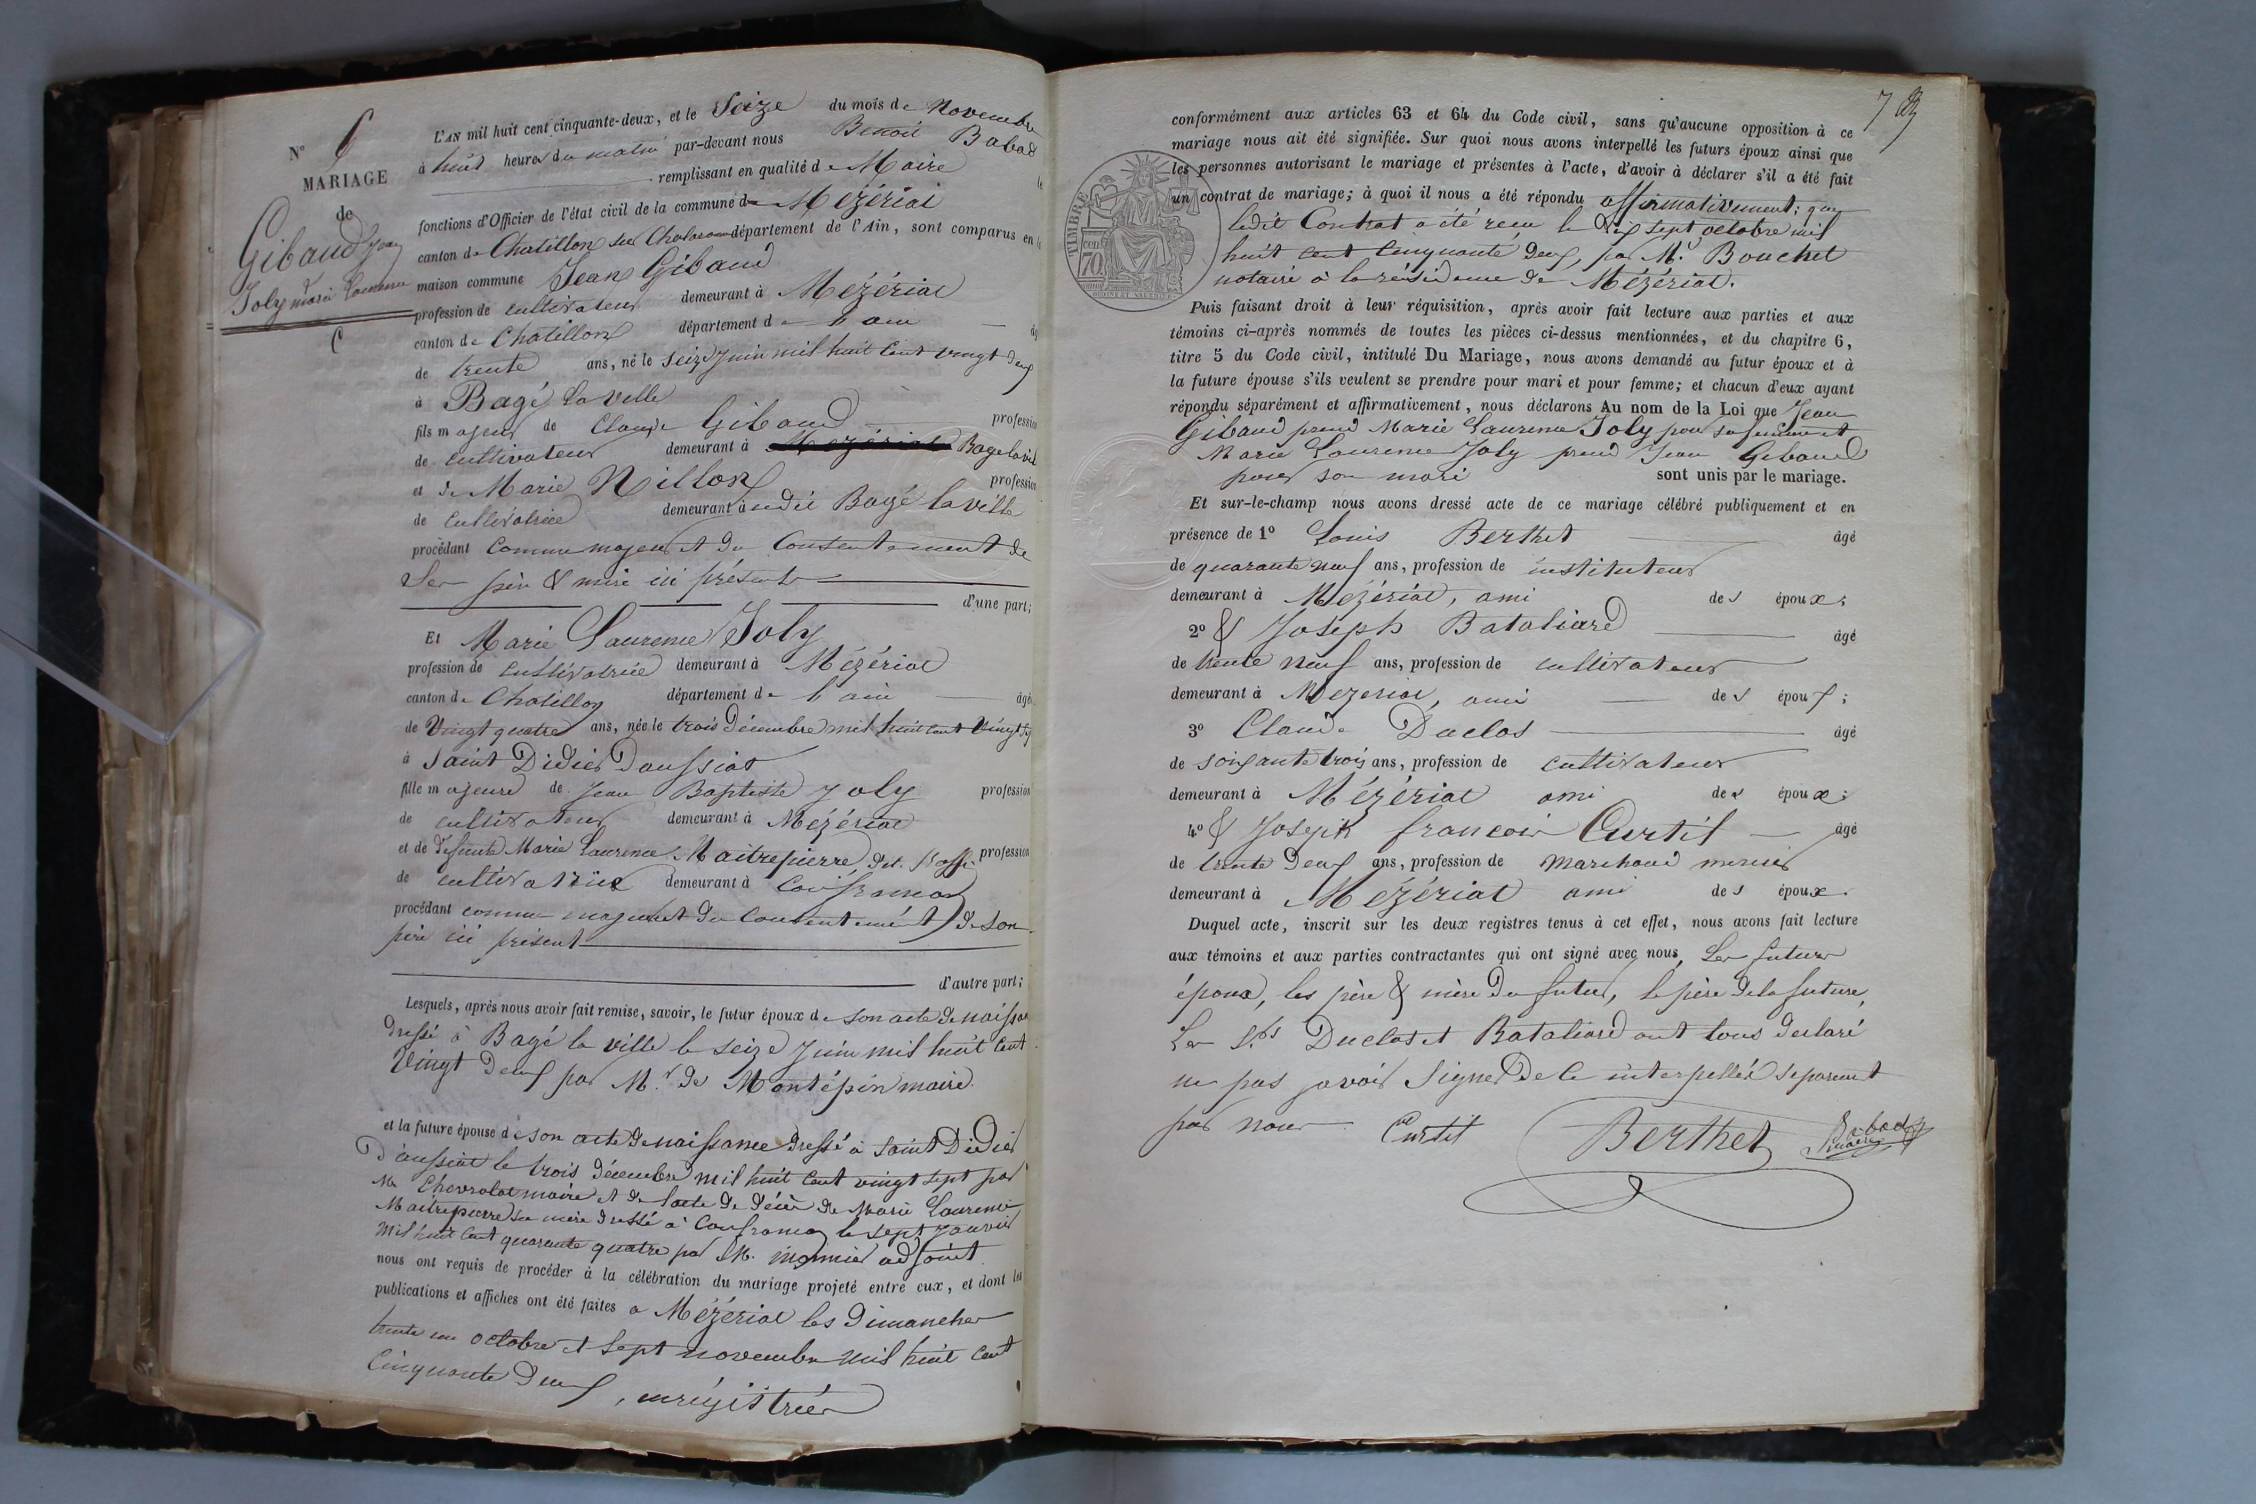 N°
MARIAGE
de
Gibaud Jean
Joly Marie Laurence
L'AN mil huit cent cinquante-deux, et le Seize du mois de Novembre
à huit heures du matin par-devant nous Benoit Babad
remplissant en qualité de Maire
fonctions d'Officier de l'état civil de la commune de Mézériat
canton de Chatillon sur Chalaronne département de l'Ain, sont comparus en la
maison commune Jean Gibaud
profession de cultivateur demeurant à Mézériat
canton de Chatillon département de l'ain
de trente ans, né le seize juin mil huit cent vingt deux
à Bagé la ville
fils majeur de Claude Gibaud profession
de cultivateur demeurant à Mézériat Bagé la ville
et de Marie Nillon profession
de cultivatrice demeurant à udit Bagé la ville
procédant comme majeur et du Consentement de
Ses père & mère ici présents
d'une part;
Et Marie Laurence Joly
profession de cultivatrice demeurant à Mézériat
canton de Chatillon département de l'ain âgée
de vingt quatre ans, née le trois Décembre mil huit cent vingt sept
à Saint Didier Daussiat
fille majeure de Jean Baptiste Joly profession
de cultivateur demeurant à Mézériat
et de défunte Marie Laurence Maitrepierre profession
de cultivatrice demeurant à Confrançon
procédant comme majeure et du Consentement de son
père ici présent
d'autre part;
Lesquels, après nous avoir fait remise, savoir, le futur époux de son acte de naissance
dressé à Bagé la ville le seize Juin mil huit cent
Vingt deux par Mr. de Montépin maire.
et la future épouse de son acte de naissance dressé à Saint Didier
D'aussiat le trois décembre mil huit cent vingt sept par
M. Chevrolat maire et de l'acte de décès de Marie Laurence
Maitrepierre sa mère dressé à Confrançon le sept Janvier
mil huit cent quarante quatre par M. adjoint
nous ont requis de procéder à la célébration du mariage projeté entre eux, et dont les
publications et affiches ont été faites à Mézériat les dimanches
trente un octobre et sept novembre mil huit cent
Cinquante deux, enrégistrées
7
conformément aux articles 63 et 64 du Code civil, sans qu'aucune opposition à ce
mariage nous ait été signifiée. Sur quoi nous avons interpellé les futurs époux ainsi que
les personnes autorisant le mariage et présentes à l'acte, d'avoir à déclarer s'il a été fait
un contrat de mariage; à quoi il nous a été répondu affirmativement; que
ledit Contrat a été reçu le dix sept octobre mil
huit cent cinquante deux, par Mr. Bouchet
notaire à la résidence de Mézériat.
TIMBRE
70
Puis faisant droit à leur réquisition, après avoir fait lecture aux parties et aux
témoins ci-après nommés de toutes les pièces ci-dessus mentionnées, et du chapitre 6,
titre 5 du Code civil, intitulé Du Mariage, nous avons demandé au futur époux et à
la future épouse s'ils veulent se prendre pour mari et pour femme; et chacun d'eux ayant
répondu séparément et affirmativement, nous déclarons Au nom de la Loi que Jean
Gibaud prend Marie Laurence Joly pour sa femme et
Marie Laurence Joly prend Jean Gibaud
pour son mari sont unis par le mariage.
Et sur-le-champ nous avons dressé acte de ce mariage célébré publiquement et en
présence de 1° Louis Berthet âgé
de quarante neuf ans, profession de instituteur
demeurant à Mézériat, ami des époux;
2° & Joseph Bataliard âgé
de trente neuf ans, profession de cultivateur
demeurant à Mezeriat, ami des époux;
3° Claude Duclos âgé
de soixante trois ans, profession de cultivateur
demeurant à Mézériat ami des époux;
4° & Joseph françois Curtil âgé
de trente deux ans, profession de Marchand mercier
demeurant à Mézériat ami des époux.
Duquel acte, inscrit sur les deux registres tenus à cet effet, nous avons fait lecture
aux témoins et aux parties contractantes qui ont signé avec nous, Les futurs
époux, les père & mère du futur, le père de la future,
Les Srs Duclos et Bataliard ont tous déclaré
ne pas savoir Signer de ce interpellés séparemt
par nous. Curtil Berthet Babad
maire